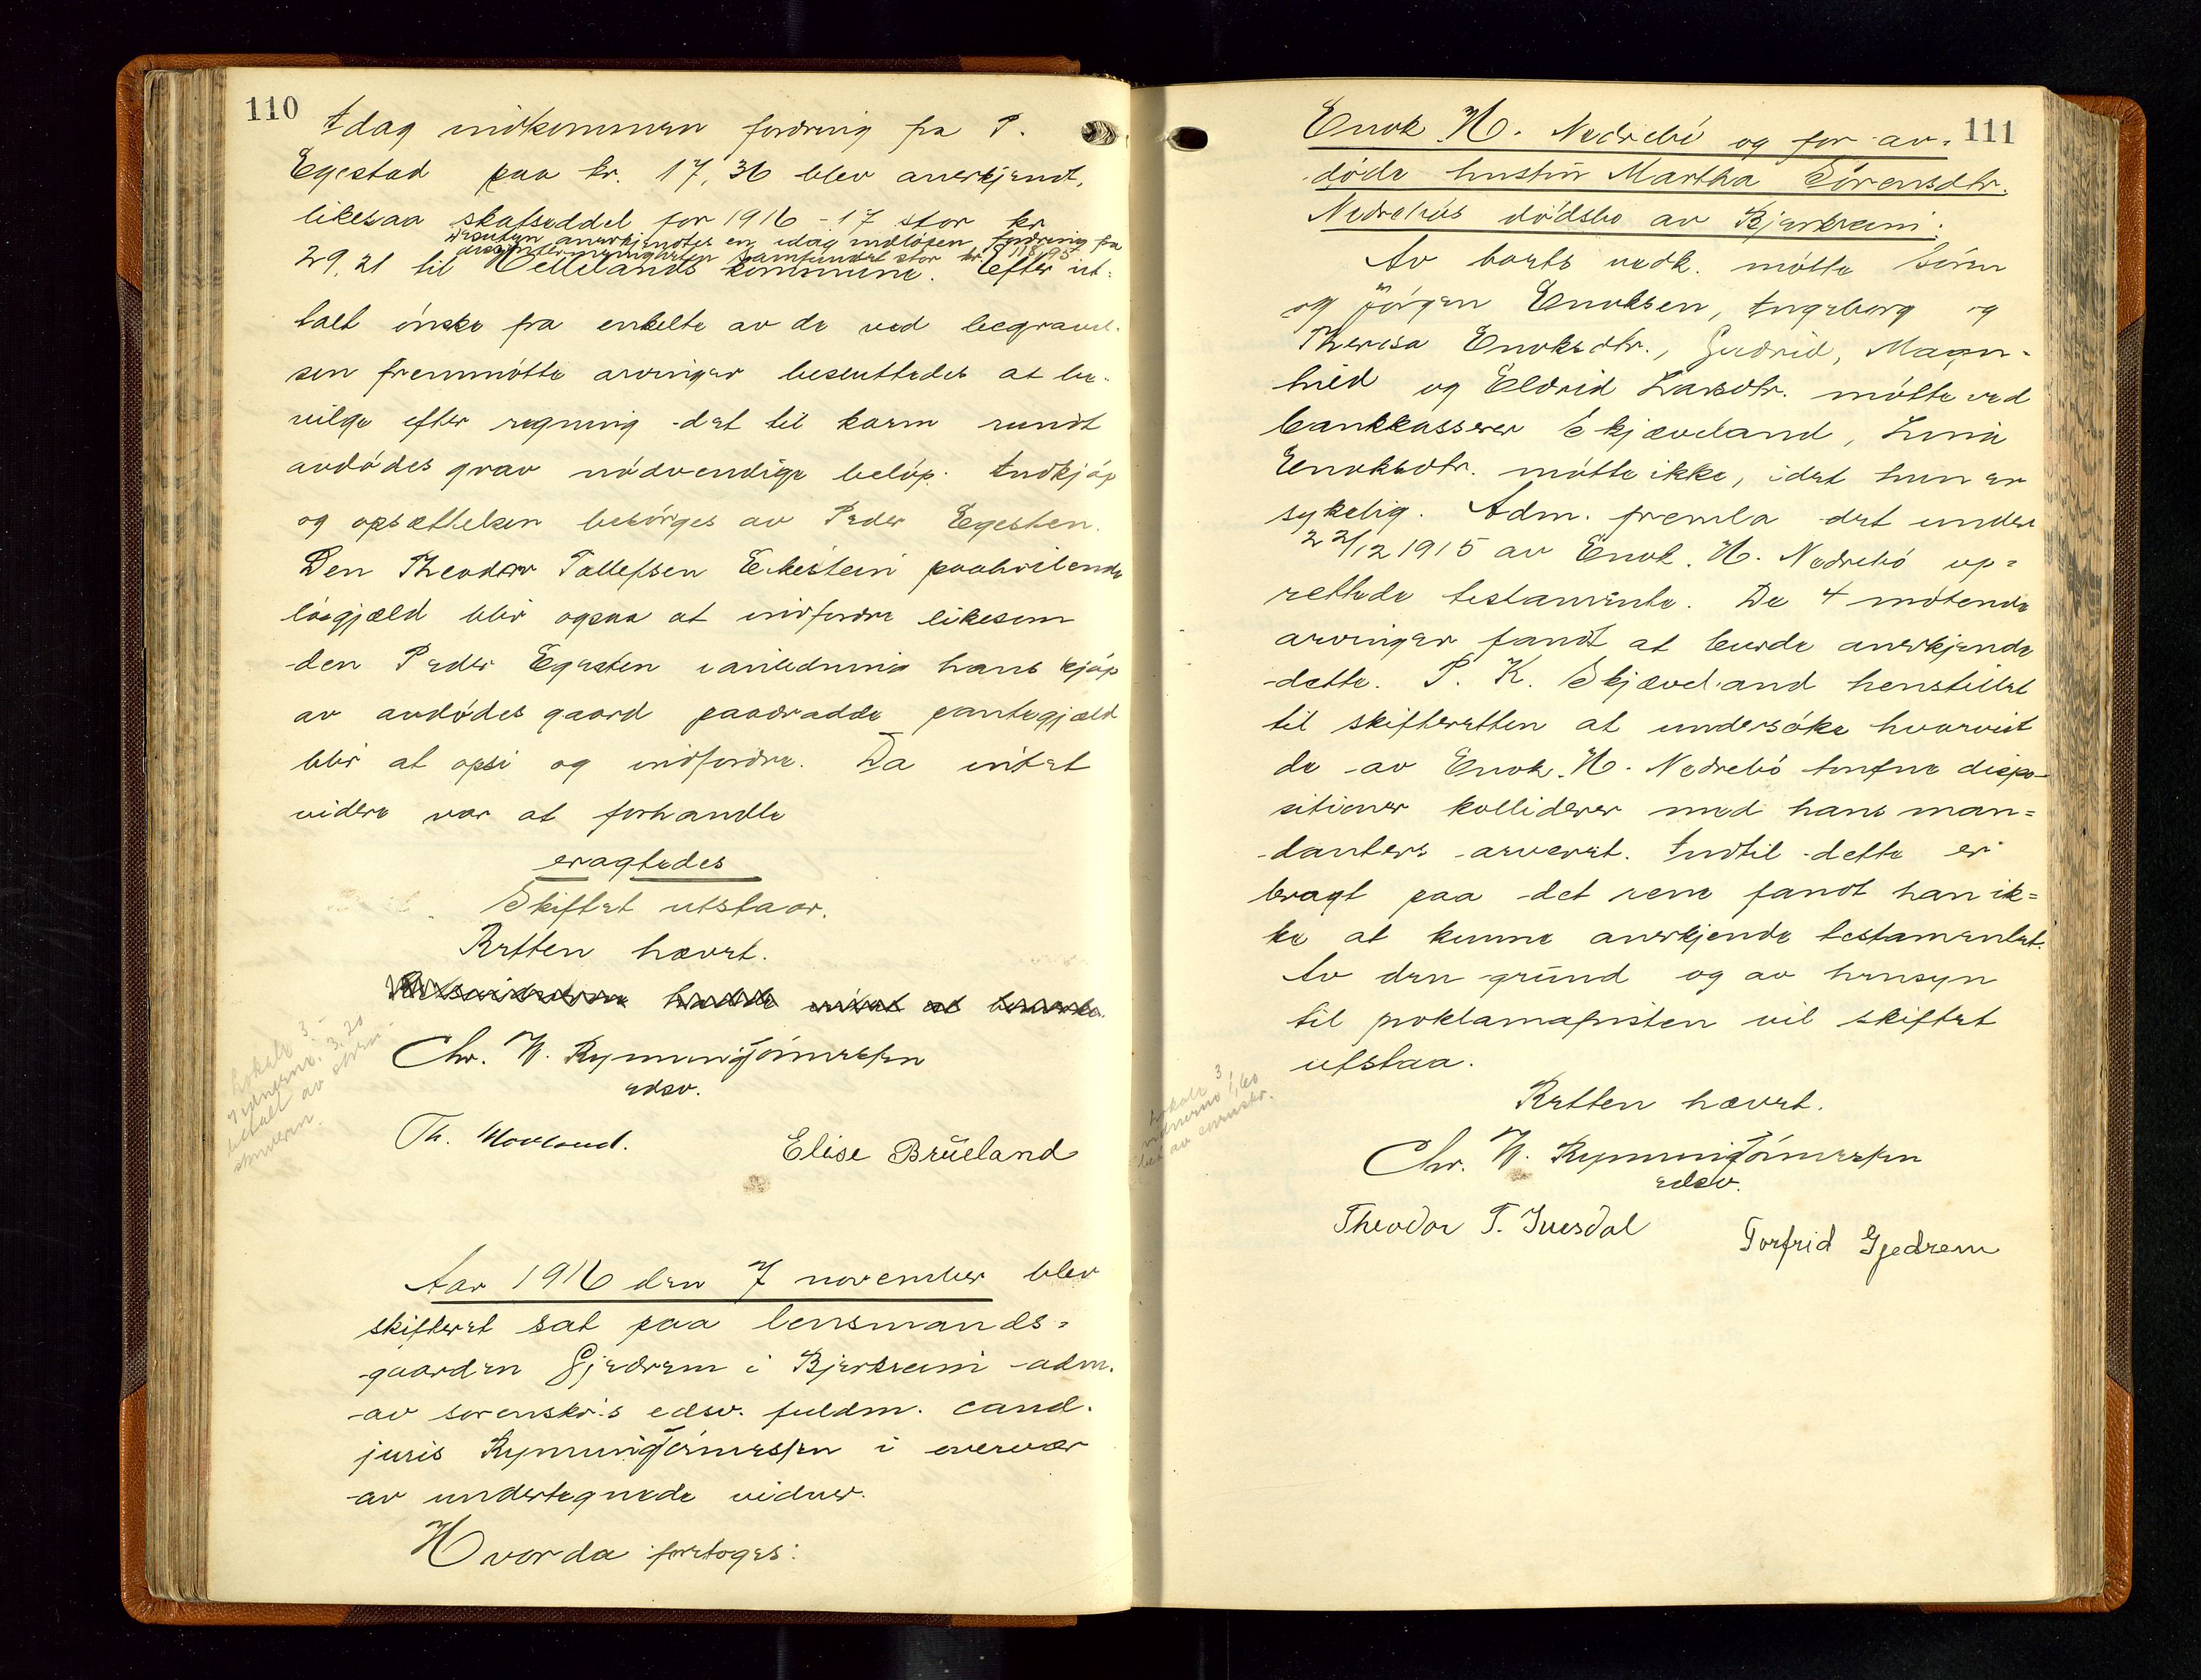 110
Idag indkommen fordring fra P.
Egestad paa kr. 17,36 blev anerkjendt,
likesaa skatseddel for 1916-17 stor kr.
desuden anerkjendtes en idag indløsen fordring fra
samfundet stor kr. 118,95
29,21 til Hellelands kommune. Efter ut-
talt ønske fra enkelte av de ved begravel-
sen fremmøtte arvinger besluttedes at be-
vilge efter regning det til karm rundt
avdødes grav nødvendige beløp. Indkjøp
og opsættelsen besørges av Peder Egesten.
Den Theodor Tollefsen Eikestein paahvilende
løsgjæld blir ogsaa at indfordre likesom
den Peder Egesten i anledning hans kjøp
av avdødes gaard paadradde pantegjæld
blir at opsi og indfordre. Da intet
videre var at forhandle
eragtedes
Skiftet utstaar.
Retten hævet.
Chr. W. Rynning Tönnesen
edsv.
Th. Hovland. Elise Brüeland
lokale 3 -
vidnerne 3.20
betalt av
Aar 1916 den 7 november blev
skifteret sat paa lensmands-
gaarden Gjedrem i Bjerkreim adm.
av sorenskr.s edsv. fuldm. cand.
juris Rynning Tönnesen i overvær
av undertegnede vidner.
Hvorda foretoges:
111
Enok H. Nedrebö og for av-
døde hustru Martha Sörensdtr.
Nedrebös dødsbo av Bjerkreim:
Av boets vedk. møtte Sören
og Jörgen Enoksen, Ingeborg og
Theresa Enoksdtr., Gudrid, Magn-
hild og Eldrid Larsdtr. møtte ved
bankkasserer Skjæveland, Lina
Enoksdtr. møtte ikke, idet hun er
sykelig. Adm. fremla det under
22/12 1915 av Enok H. Nedrebö op-
rettede testamente. De 4 møtende
arvinger fandt at burde anerkjende
dette. P. K. Skjæveland henstillet
til skifteretten at undersøke hvorvidt
de av Enok H. Nedrebö trufne dispo-
sitioner kolliderer med hans man-
danters arveret. Indtil dette er
bragt paa det rene fandt han ik-
ke at kunne anerkjende testamentet.
Av den grund og av hensyn
til proklamafristen vil skiftet
utstaa.
Retten hævet.
Chr. W. Rynning Tönnesen
edsv.
Theodor T. Ivesdal Torfrid Gjedrem
lokale 3,
vidnerne 1,60
bet av